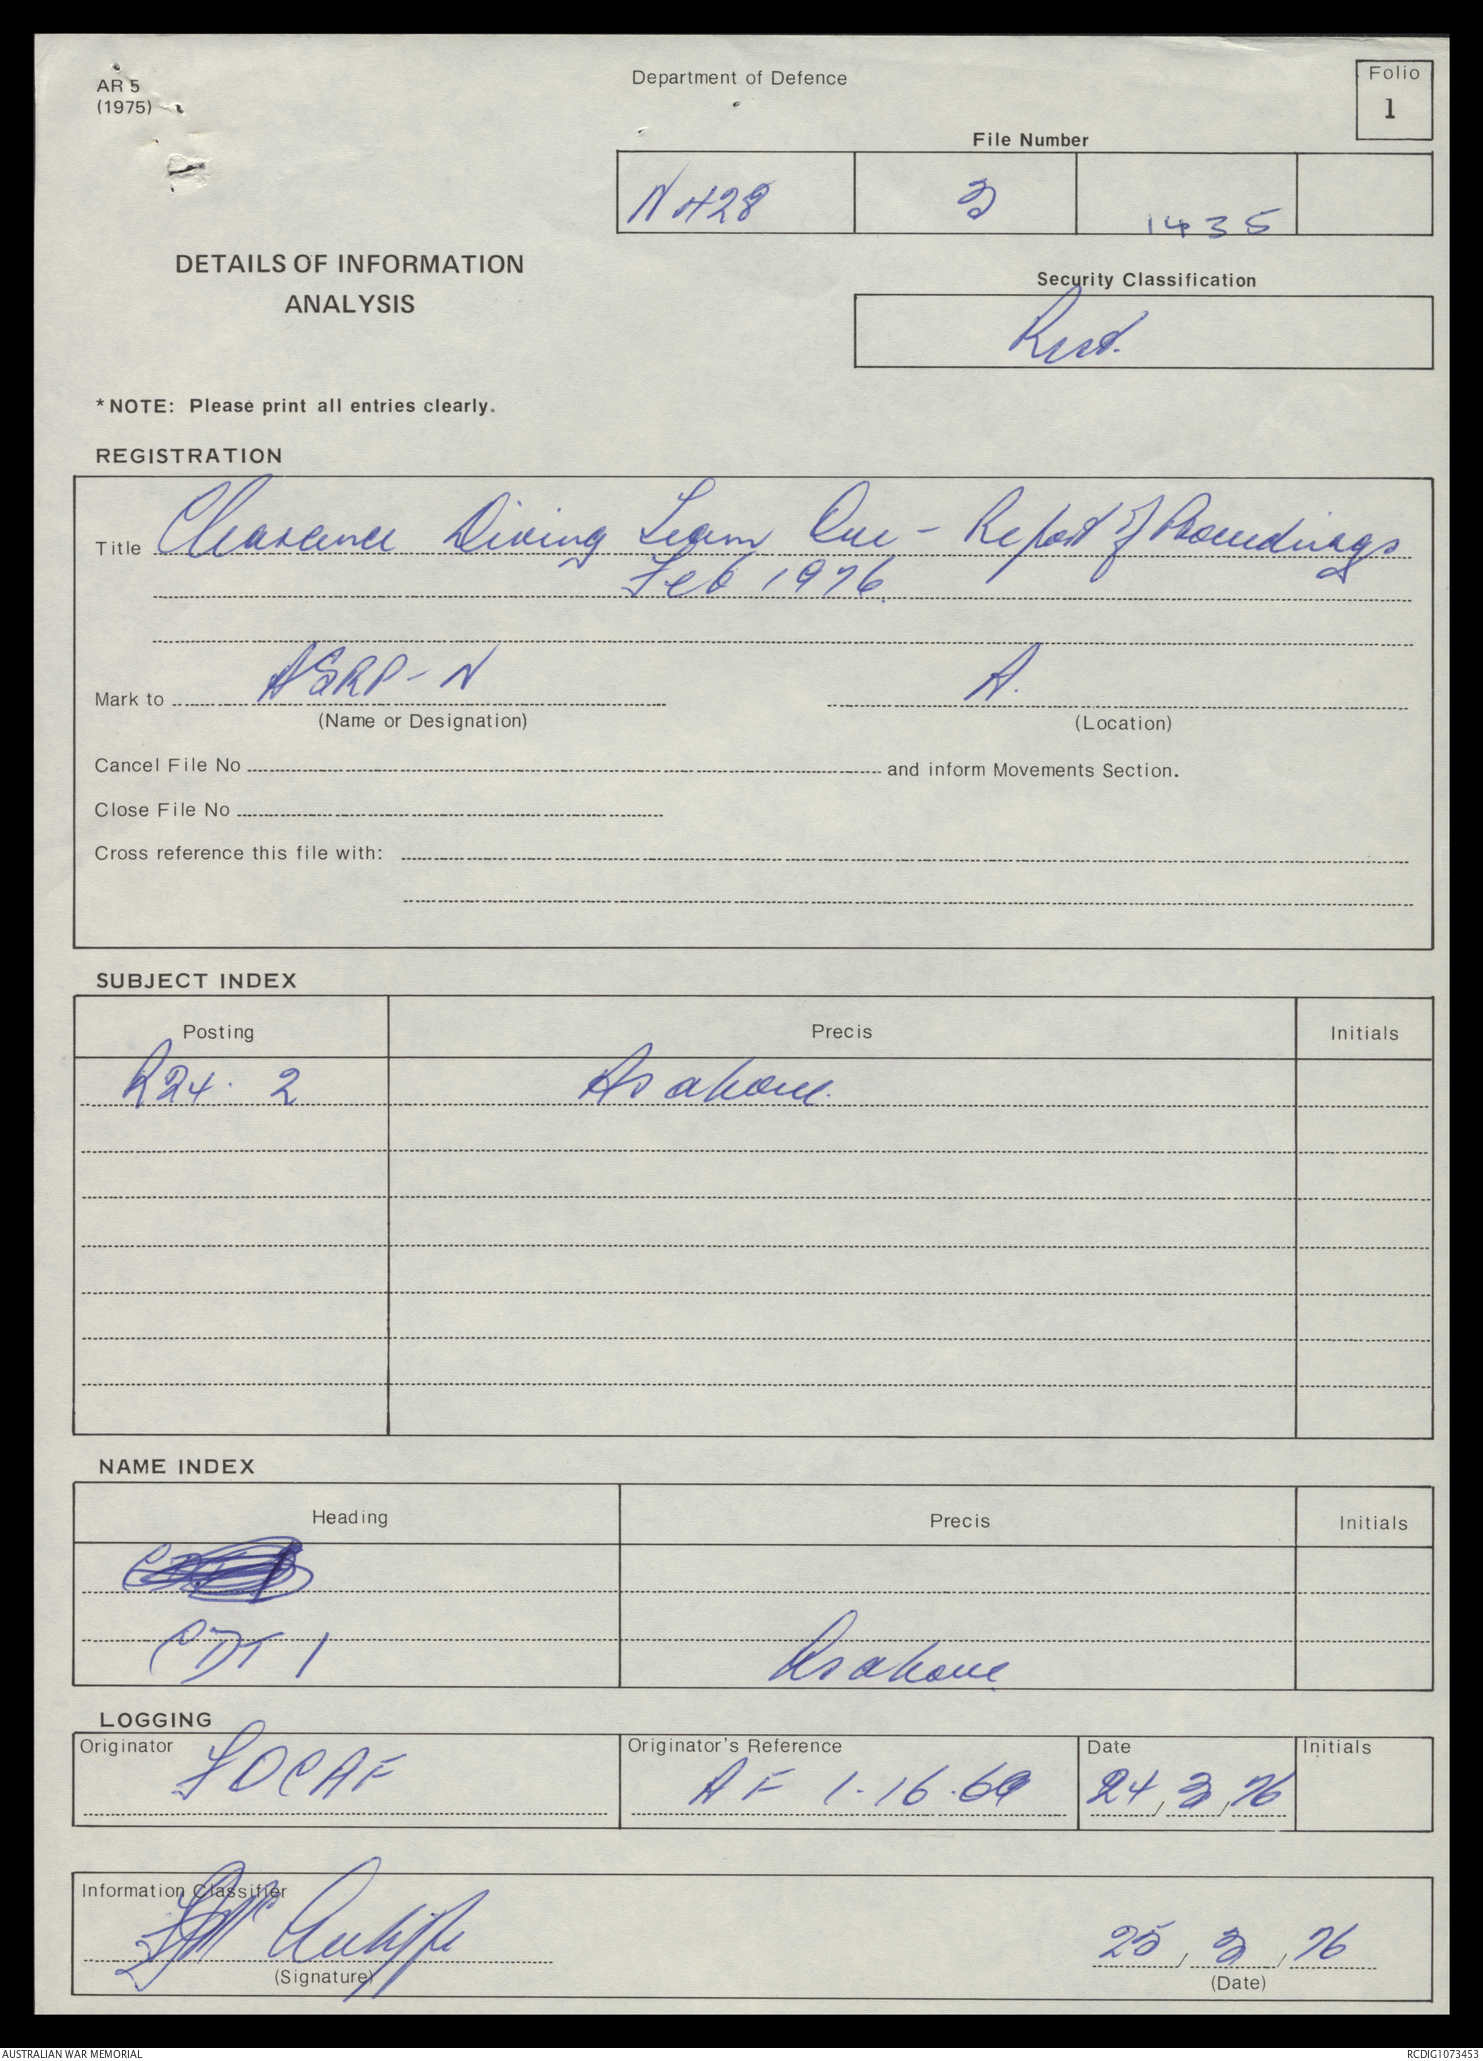 AR 5
(1975)
Department of Defence
Folio
1
File Number
N H28 3 1435
DETAILS OF INFORMATION
ANALYSIS
Security Classification
Rest.
*NOTE: Please print all entries clearly.
REGISTRATION
Title Clearance Diving Team One - Report of Proceedings
Feb 1976
Mark to ASRP-N A.
(Name or Designation) (Location)
Cancel File No and inform Movements Section.
Close File No
Cross reference this file with:
SUBJECT INDEX
Posting Precis Initials
R24. 2 As above.
NAME INDEX
Heading Precis Initials
CDT 1 As above
LOGGING
Originator Originator's Reference Date Initials
FOCAF AF 1.16.69 24, 3, 76
Information Classifier
25, 3, 76
(Signature) (Date)
AUSTRALIAN WAR MEMORIAL RCDIG1073453